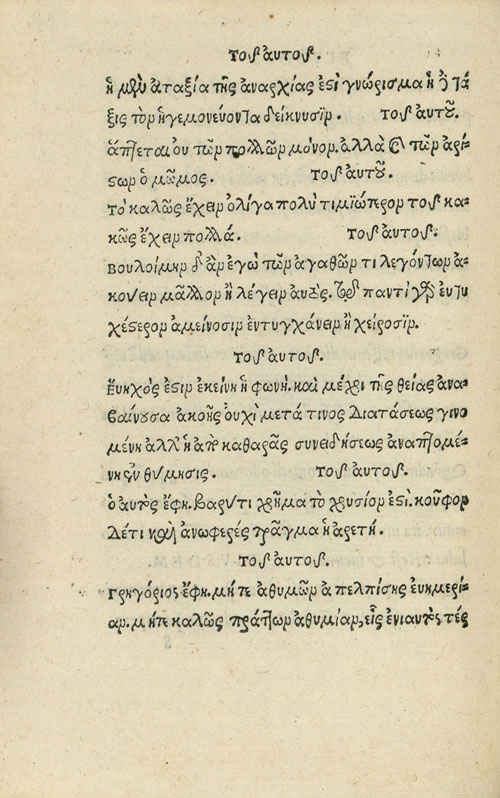 τοῦ αυτοῦ.
ἡ μὲν αταξία τῆς αναρχίας ἐστὶ γνώρισμα ἡ δὲ τά-
ξις τὸν ἡγεμονεύοντα δείκνυσῖν. τοῦ αυτοῦ.
ἅπτεται ου τῶν πολλῶν μόνον. ἀλλὰ καὶ τῶν αρί-
στων ὁ μῶμος. τοῦ αυτοῦ.
τὸ καλῶς ἔχειν ολίγα πολὺ τιμϊώτερον τοῦ κα-
κῶς ἔχειν πολλά. τοῦ αυτοῦ.
βουλοίμην δ' ἂν εγὼ τῶν αγαθῶν τι λεγόντων ἀ-
κούειν μᾶλλον ἢ λέγειν αυτός. παντὶ γὰρ ευτυ
χέστερον αμείνοσιν εντυγχάνειν ἢ χείροσῖν.
τοῦ αυτοῦ.
ἔυηχός ἐστιν εκείνη ἡ φωνὴ. καὶ μέχρι τῆς θείας ἀνα-
βαίνουσα ακοῆς ουχὶ μετά τινος διατάσεως γινο
μένη ἀλλ' ἡ ἀπὸ καθαρᾶς συνειδήσεως αναπτομέ-
νη ενθύμησις. τοῦ αυτοῦ.
ὁ αυτὸς ἔφη. βαρύ τι χρῆμα τὸ χρυσίον ἐστὶ. κοῦφον
δέ τι καὶ ἀνωφερές πρᾶγμα ἡ ἀρετή.
τοῦ αυτοῦ.
γρηγόριος ἔφη. μήτε ἀθυμῶν ἀπελπίσης ἐυημερί-
αν. μήτε καλῶς πράττων ἀθυμίαν, εἷς ἐνιαυτὸς τέσ